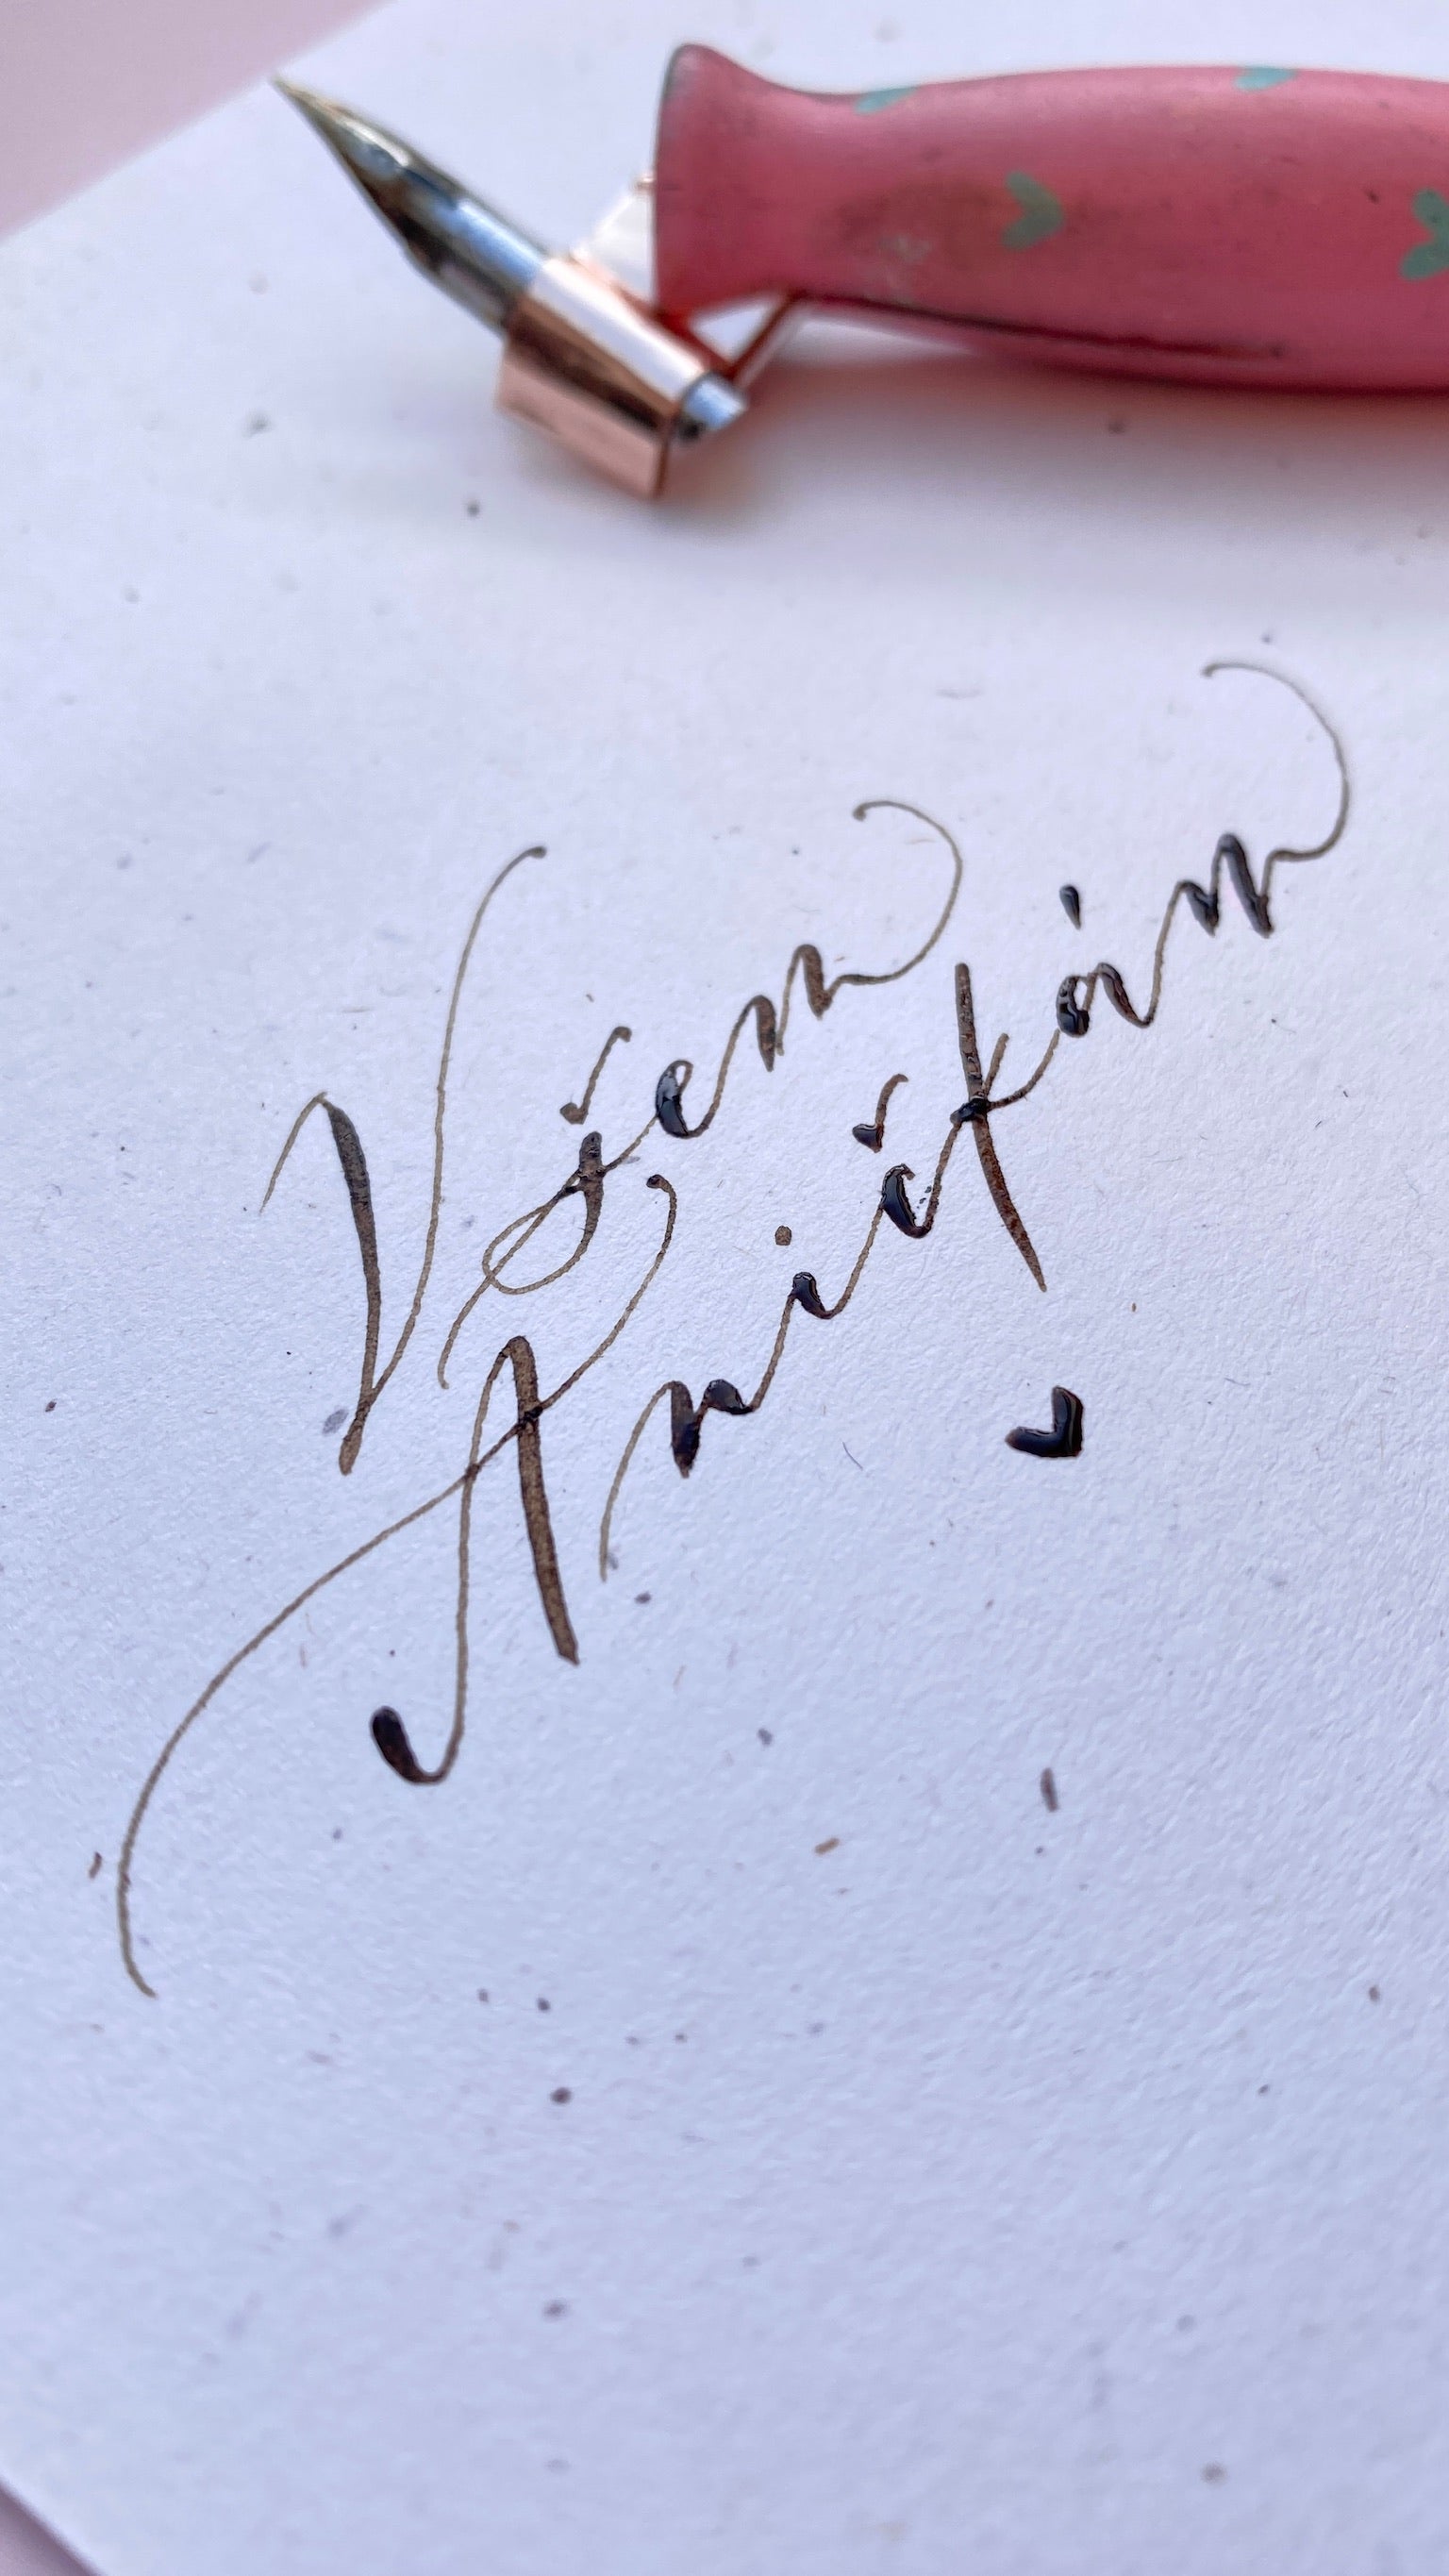 Všem
Aničkám